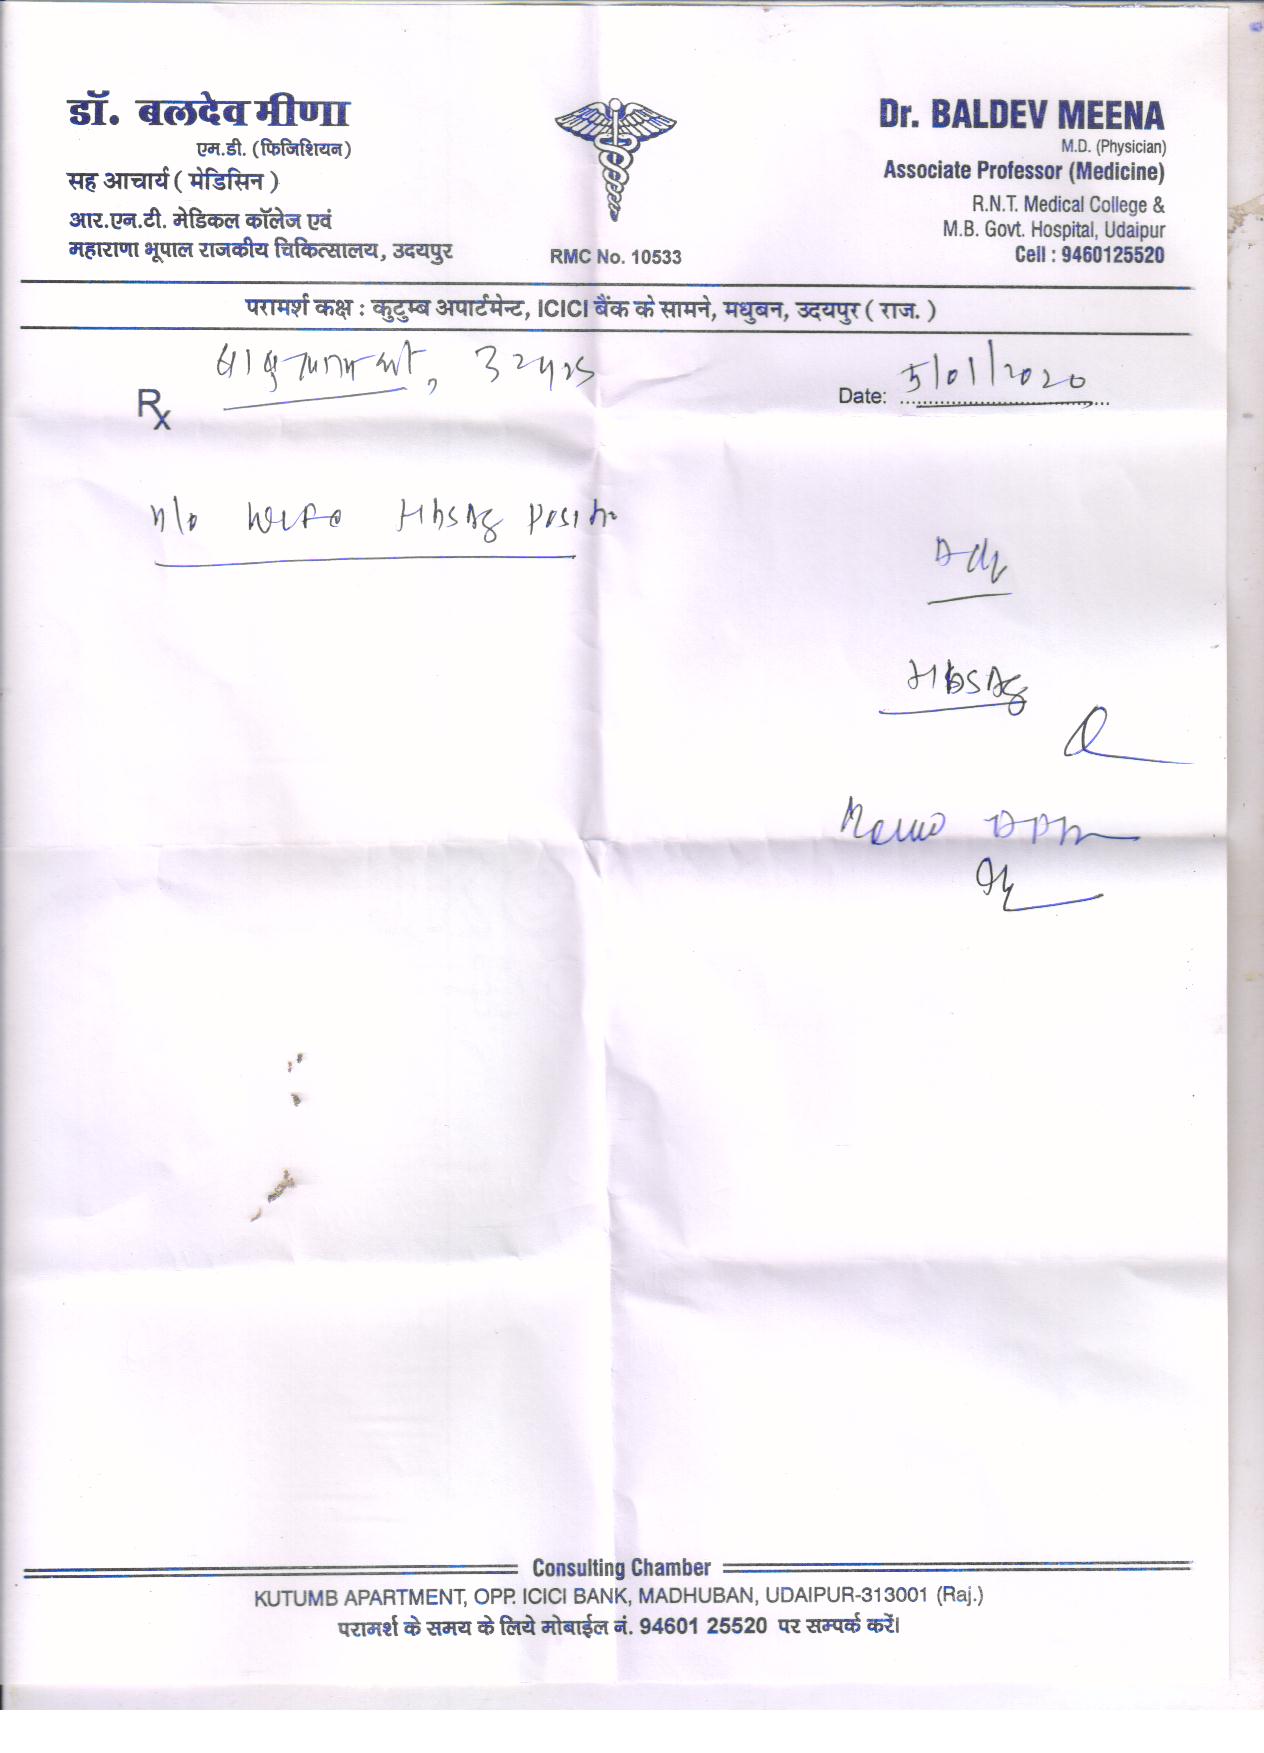 डॉ. बलदेव मीणा
एम.डी. (फिजिशियन)
सह आचार्य ( मेडिसिन )
आर.एन.टी. मेडिकल कॉलेज एवं
महाराणा भूपाल राजकीय चिकित्सालय, उदयपुर
RMC No. 10533
Dr. BALDEV MEENA
M.D. (Physician)
Associate Professor (Medicine)
R.N.T. Medical College &
M.B. Govt. Hospital, Udaipur
Cell : 9460125520
परामर्श कक्ष : कुटुम्ब अपार्टमेन्ट, ICICI बैंक के सामने, मधुबन, उदयपुर ( राज. )
32 yrs
Rx
Date: 5/01/2020
HbsAg
HbsAg
Consulting Chamber
KUTUMB APARTMENT, OPP. ICICI BANK, MADHUBAN, UDAIPUR-313001 (Raj.)
परामर्श के समय के लिये मोबाईल नं. 94601 25520 पर सम्पर्क करें।